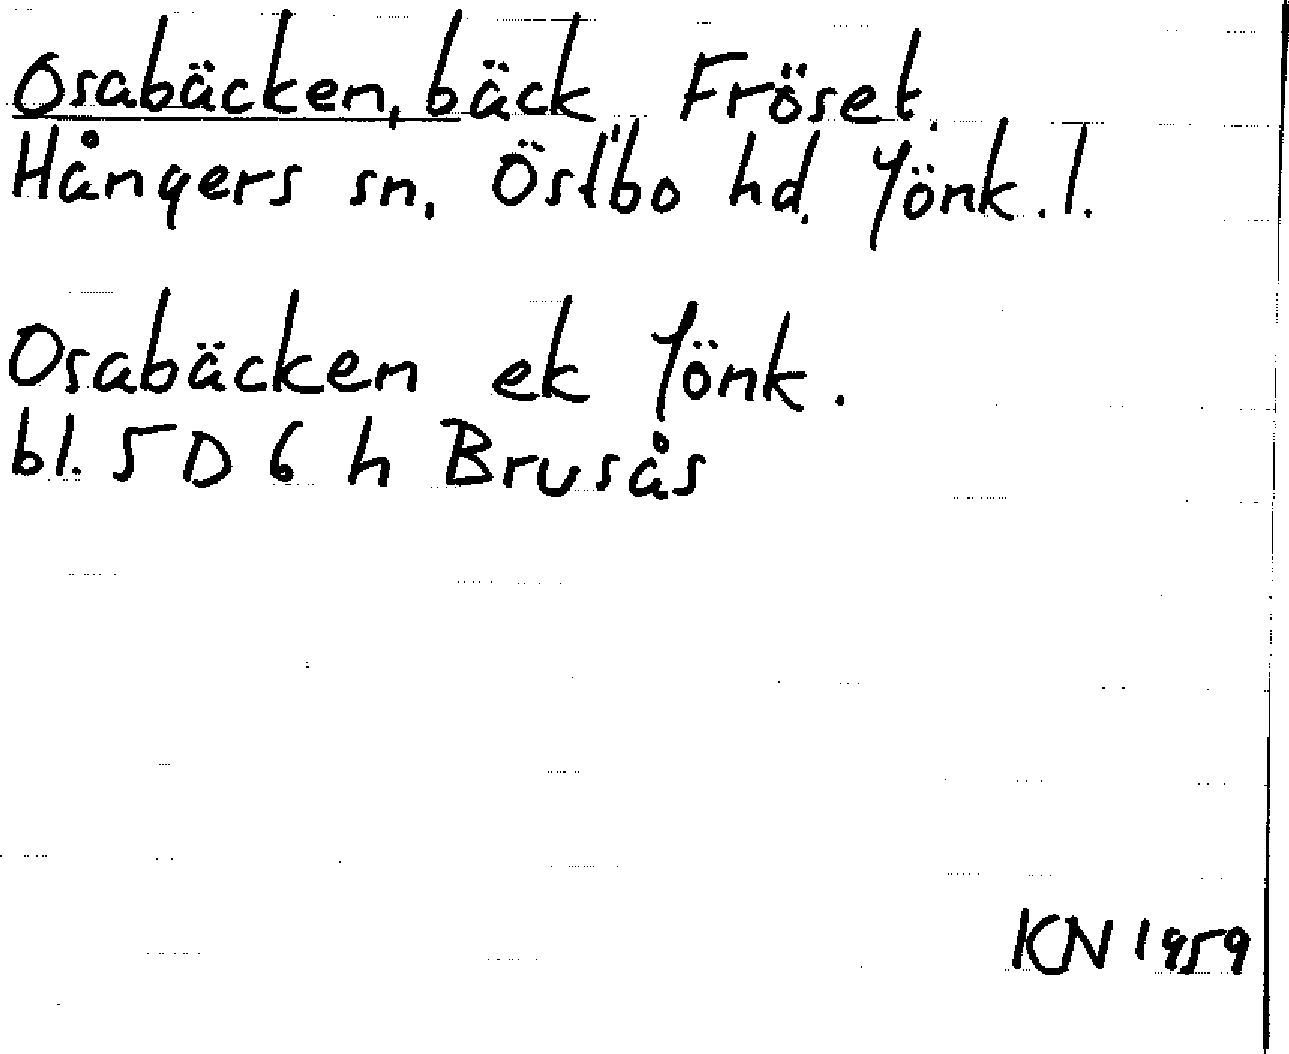 Osabäcken, bäck Fröset.
Hångers sn, Östbo hd. Jönk.l.
Osabäcken ek Jönk.
bl. 5D 6 h Brusås
KN 1959